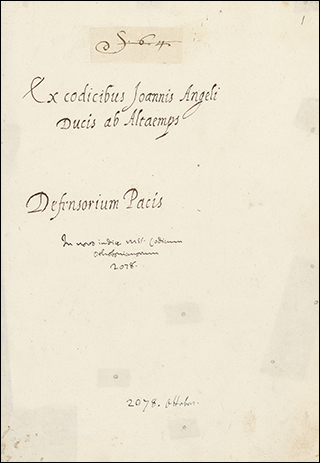 S. 6. 4.
1
Ex codicibus Joannis Angeli
Ducis ab Altaemps
Defensorium Pacis
In novo indice MSS. Codicum
Ottobonianorum
2078.
2078. Ottobon.